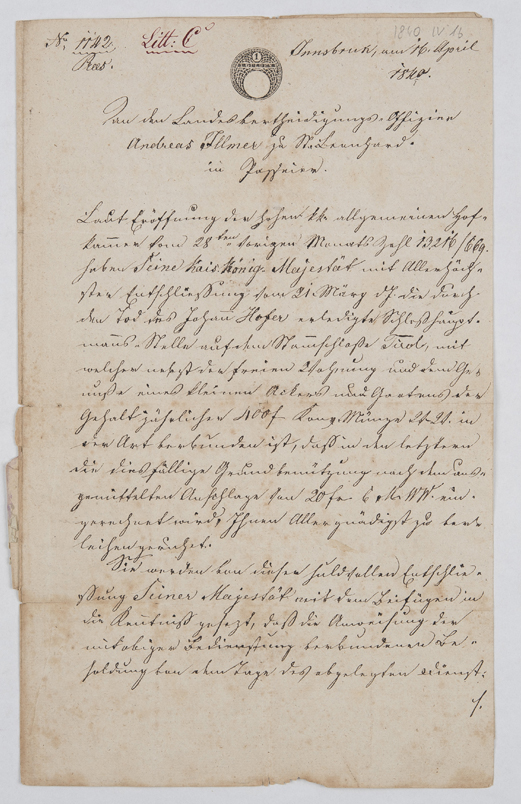 1840 IV 16
No. 1142. Litt: C
Praes.
Innsbruck, am 16. April
1840.
1
An den Landesvertheidigungs-Offizier
Andreas Illmer zu St. Leonhard
in Passeier.
Laut Eröffnung der hohen kk allgemeinen Hof-
kammer vom 28ten vorigen Monats Zahl 13216/869.
haben Seine Kais. König. Majestät mit Allerhöch-
ster Entschließung vom 21. März dJ. die durch
den Tod des Johann Hofer erledigte Schloßhaupt-
manns-Stelle auf dem Stammschloße Tirol, mit
welcher nebst der freien Wohnung und dem Ge-
nuße eines kleinen Ackers und Gartens der
Gehalt jährlicher 400f Konv. Münze in
der Art verbunden ist, daß in den letztern
die diesfällige Grundbenützung nach dem aus-
gemittelten Anschlage von 20f 6 WW. ein-
gerechnet wird, Ihnen Allergnädigst zu ver-
leihen geruhet.
Sie werden von dieser huldvollen Entschlie-
ßung Seiner Majestät mit dem Beifügen in
die Kenntniß gesezt, daß die Anweisung der
mit obiger Bedienstung verbundenen Be-
soldung von dem Tage des abgelegten Dienst-